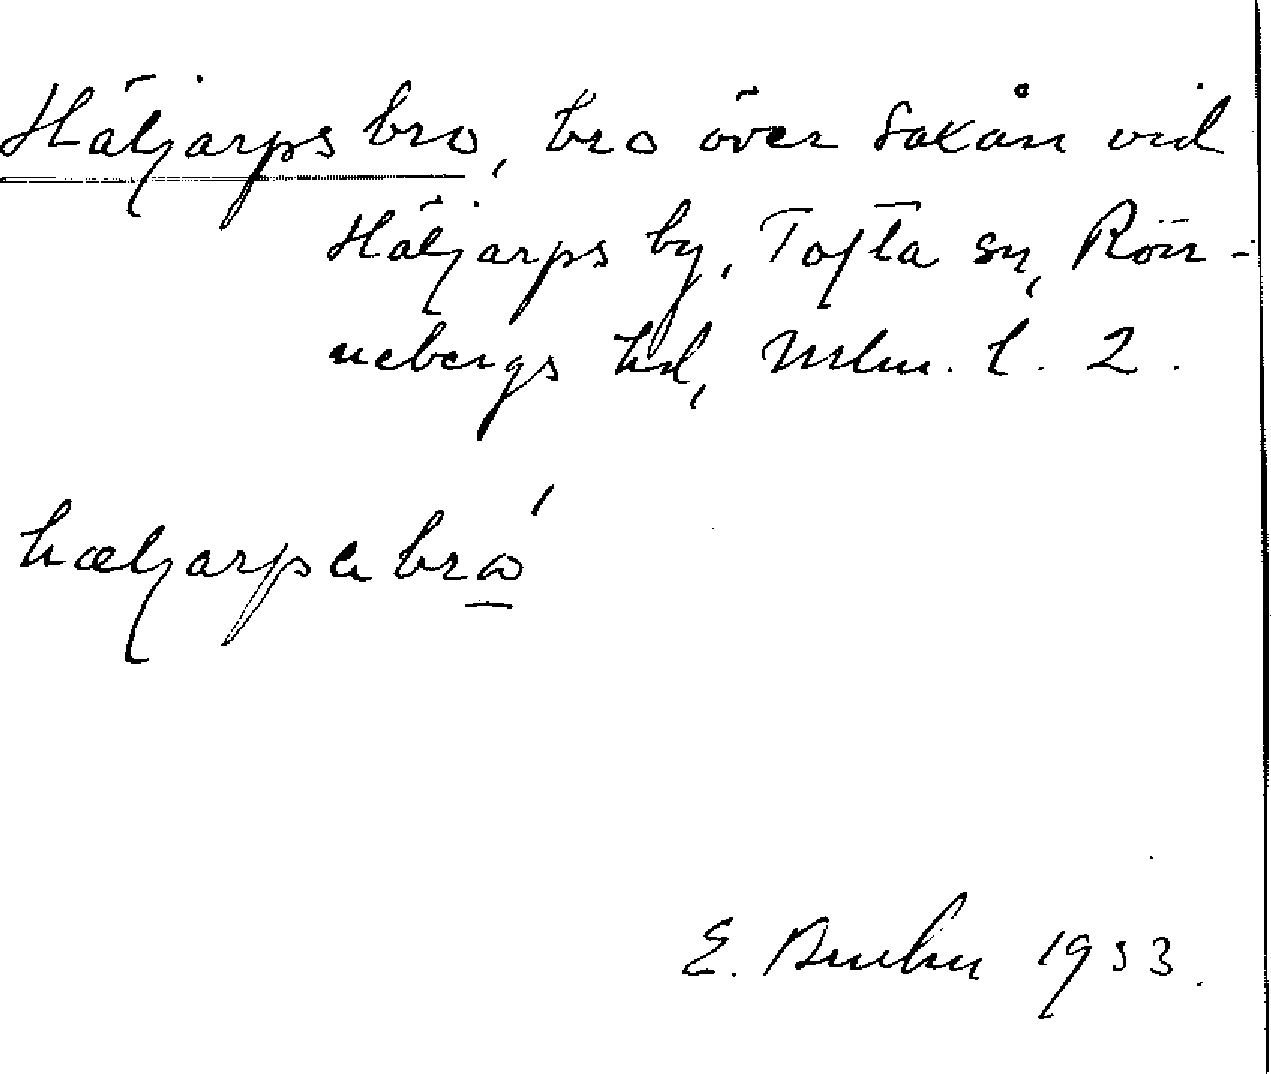 Häljarps bro, bro över Saxån vid
Häljarps by, Tofta sn, Rön-
nebergs hd, Mlm. l. 2.
hæljarpsa bro
E. 1933.